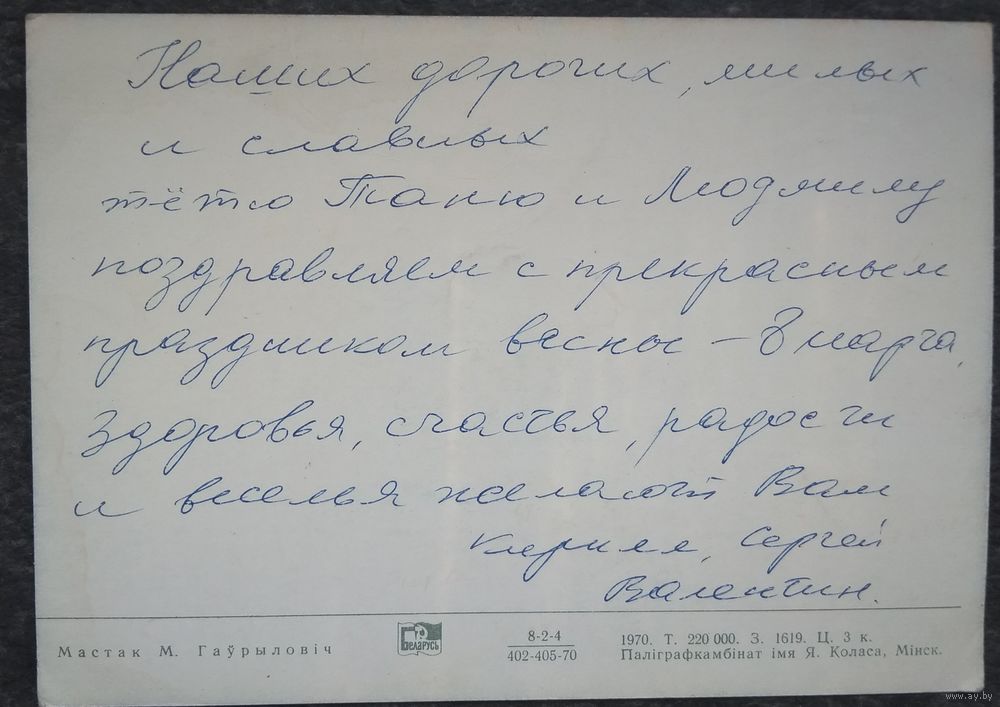 Наших дорогих, милых
и славных
тётю Таню и Людмилу
поздравляем с прекрасным
праздником весны – 8 марта,
здоровья, счастья, радости
и веселья желают Вам
Кирилл, Сергей
Валентин.
Мастак М. Гаўрыловіч
Беларусь
8-2-4
402-405-70
1970. Т. 220 000. З. 1619. Ц. 3 к.
Паліграфкамбінат імя Я. Коласа, Мінск.
www.ay.by